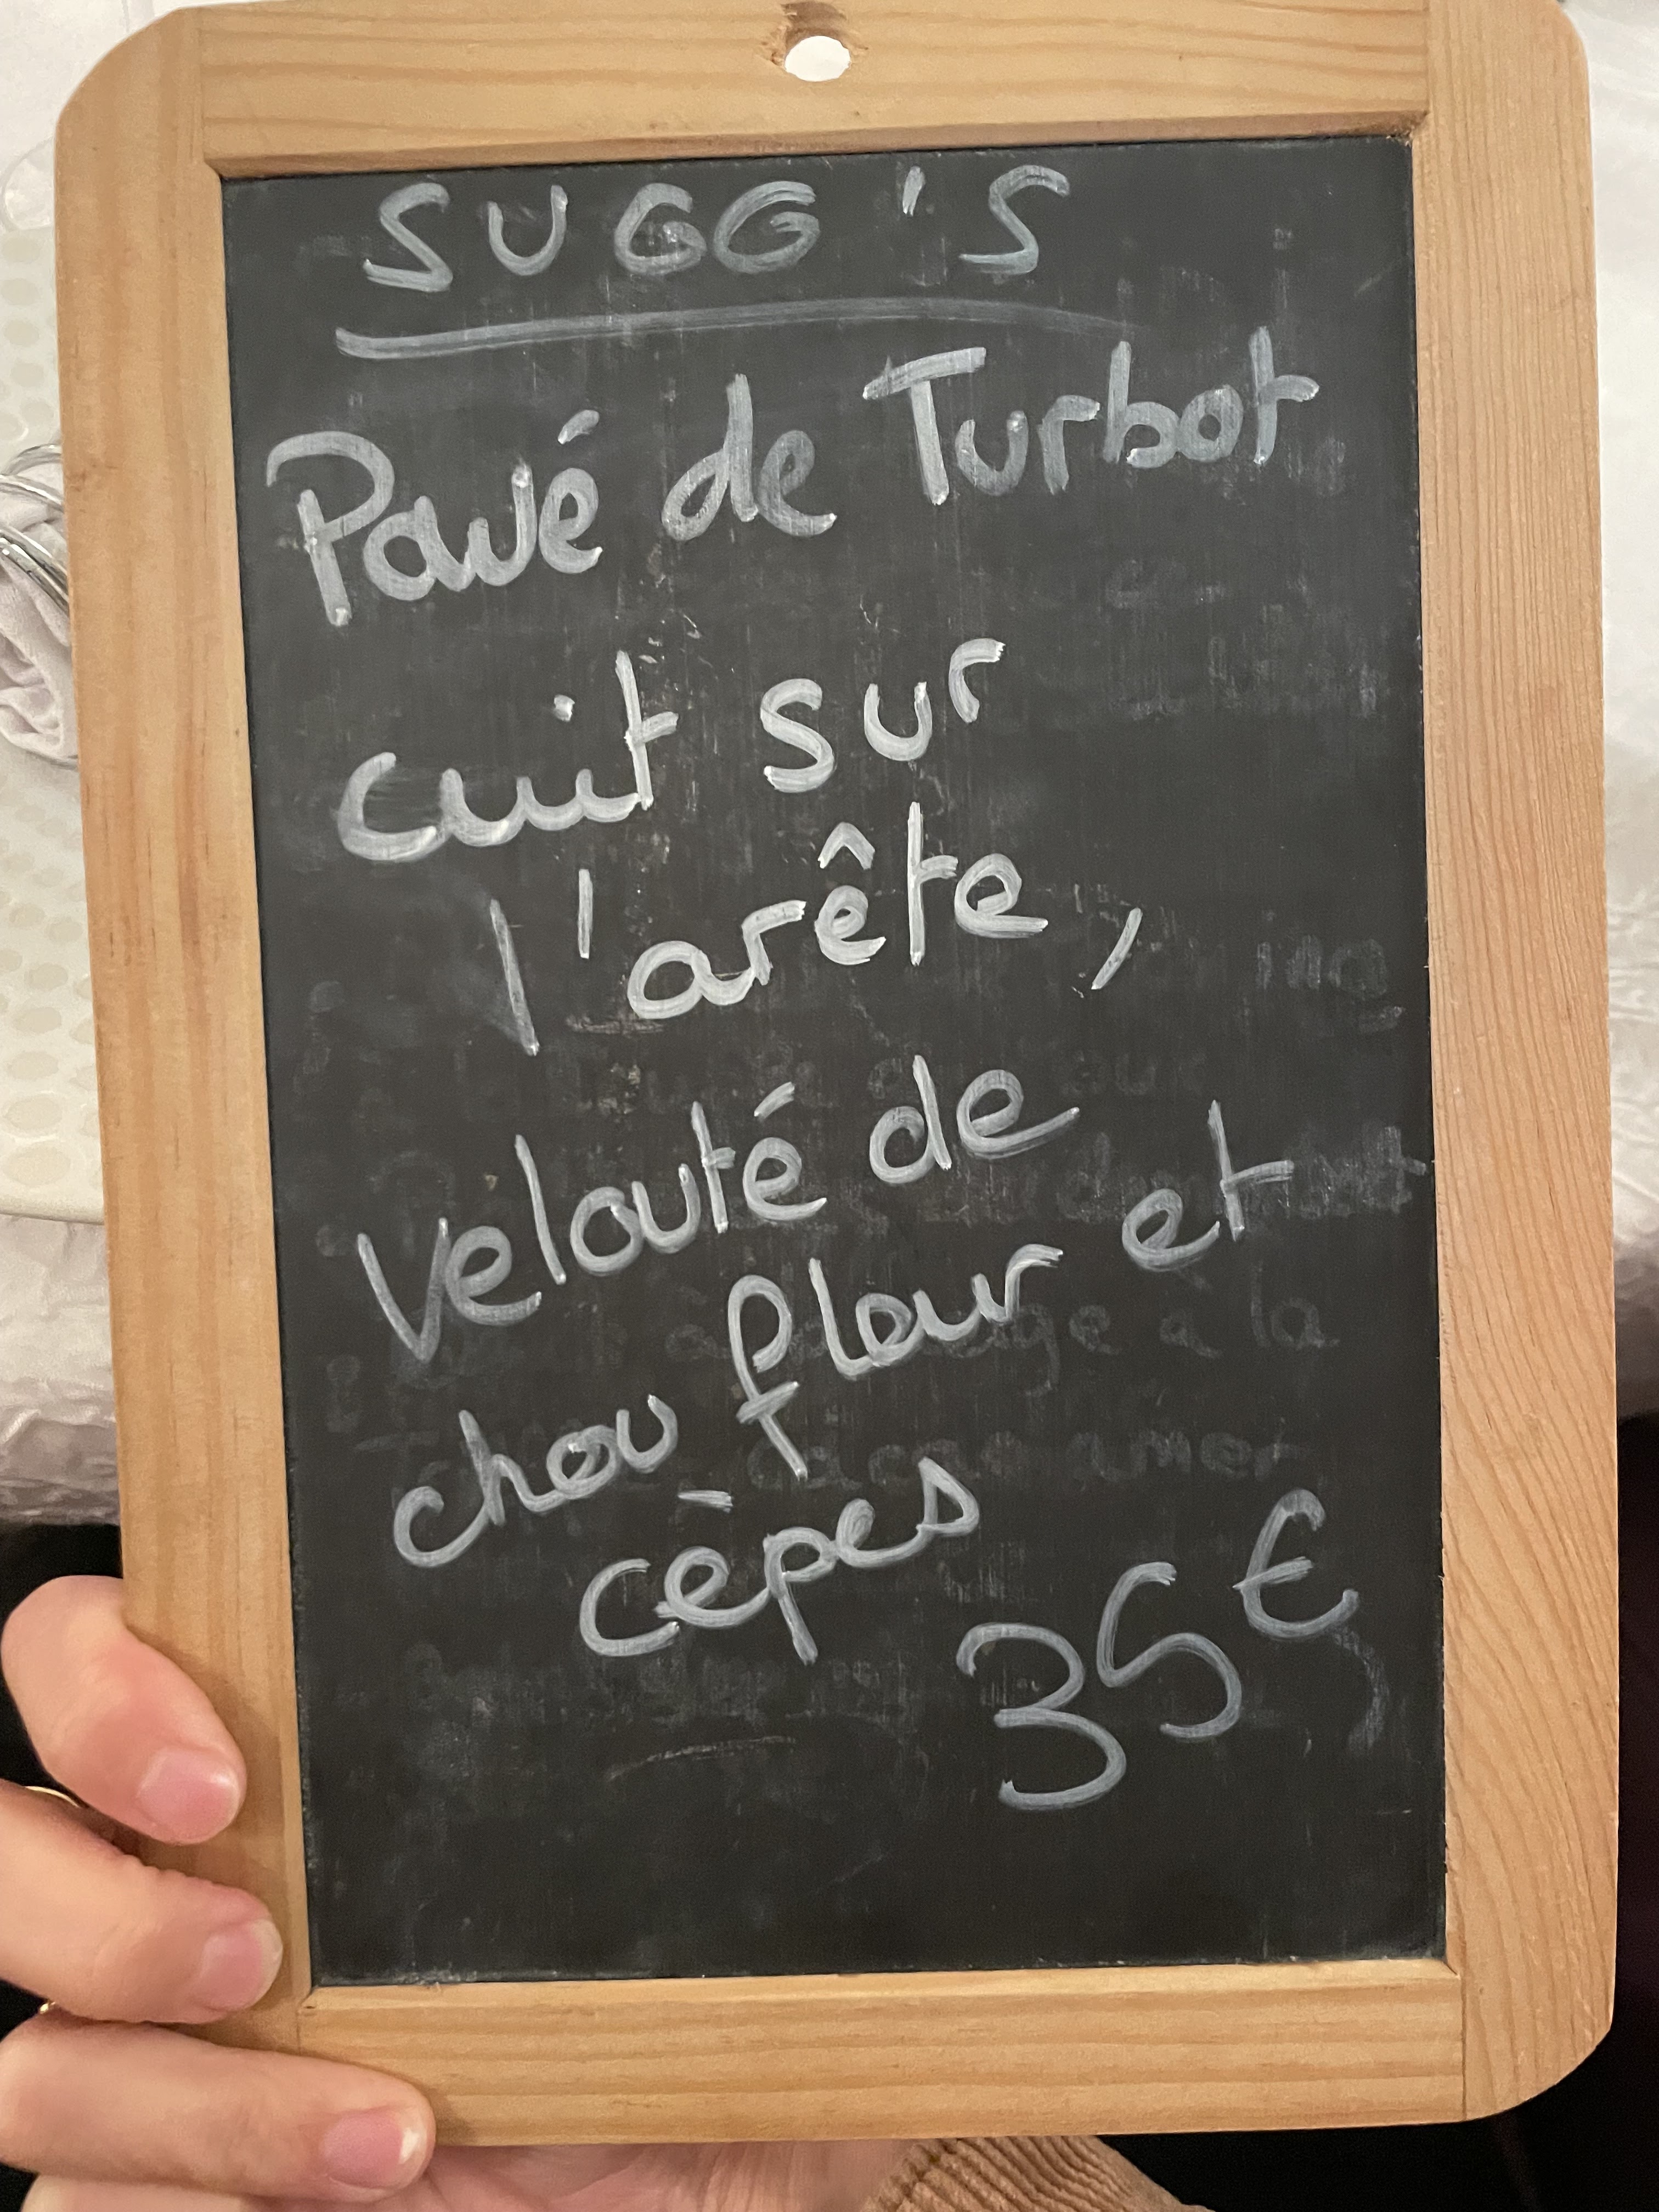 SUGG'S
Pavé de Turbot
cuit sur
l'arête,
Velouté de
chou fleur et
cèpes
35€